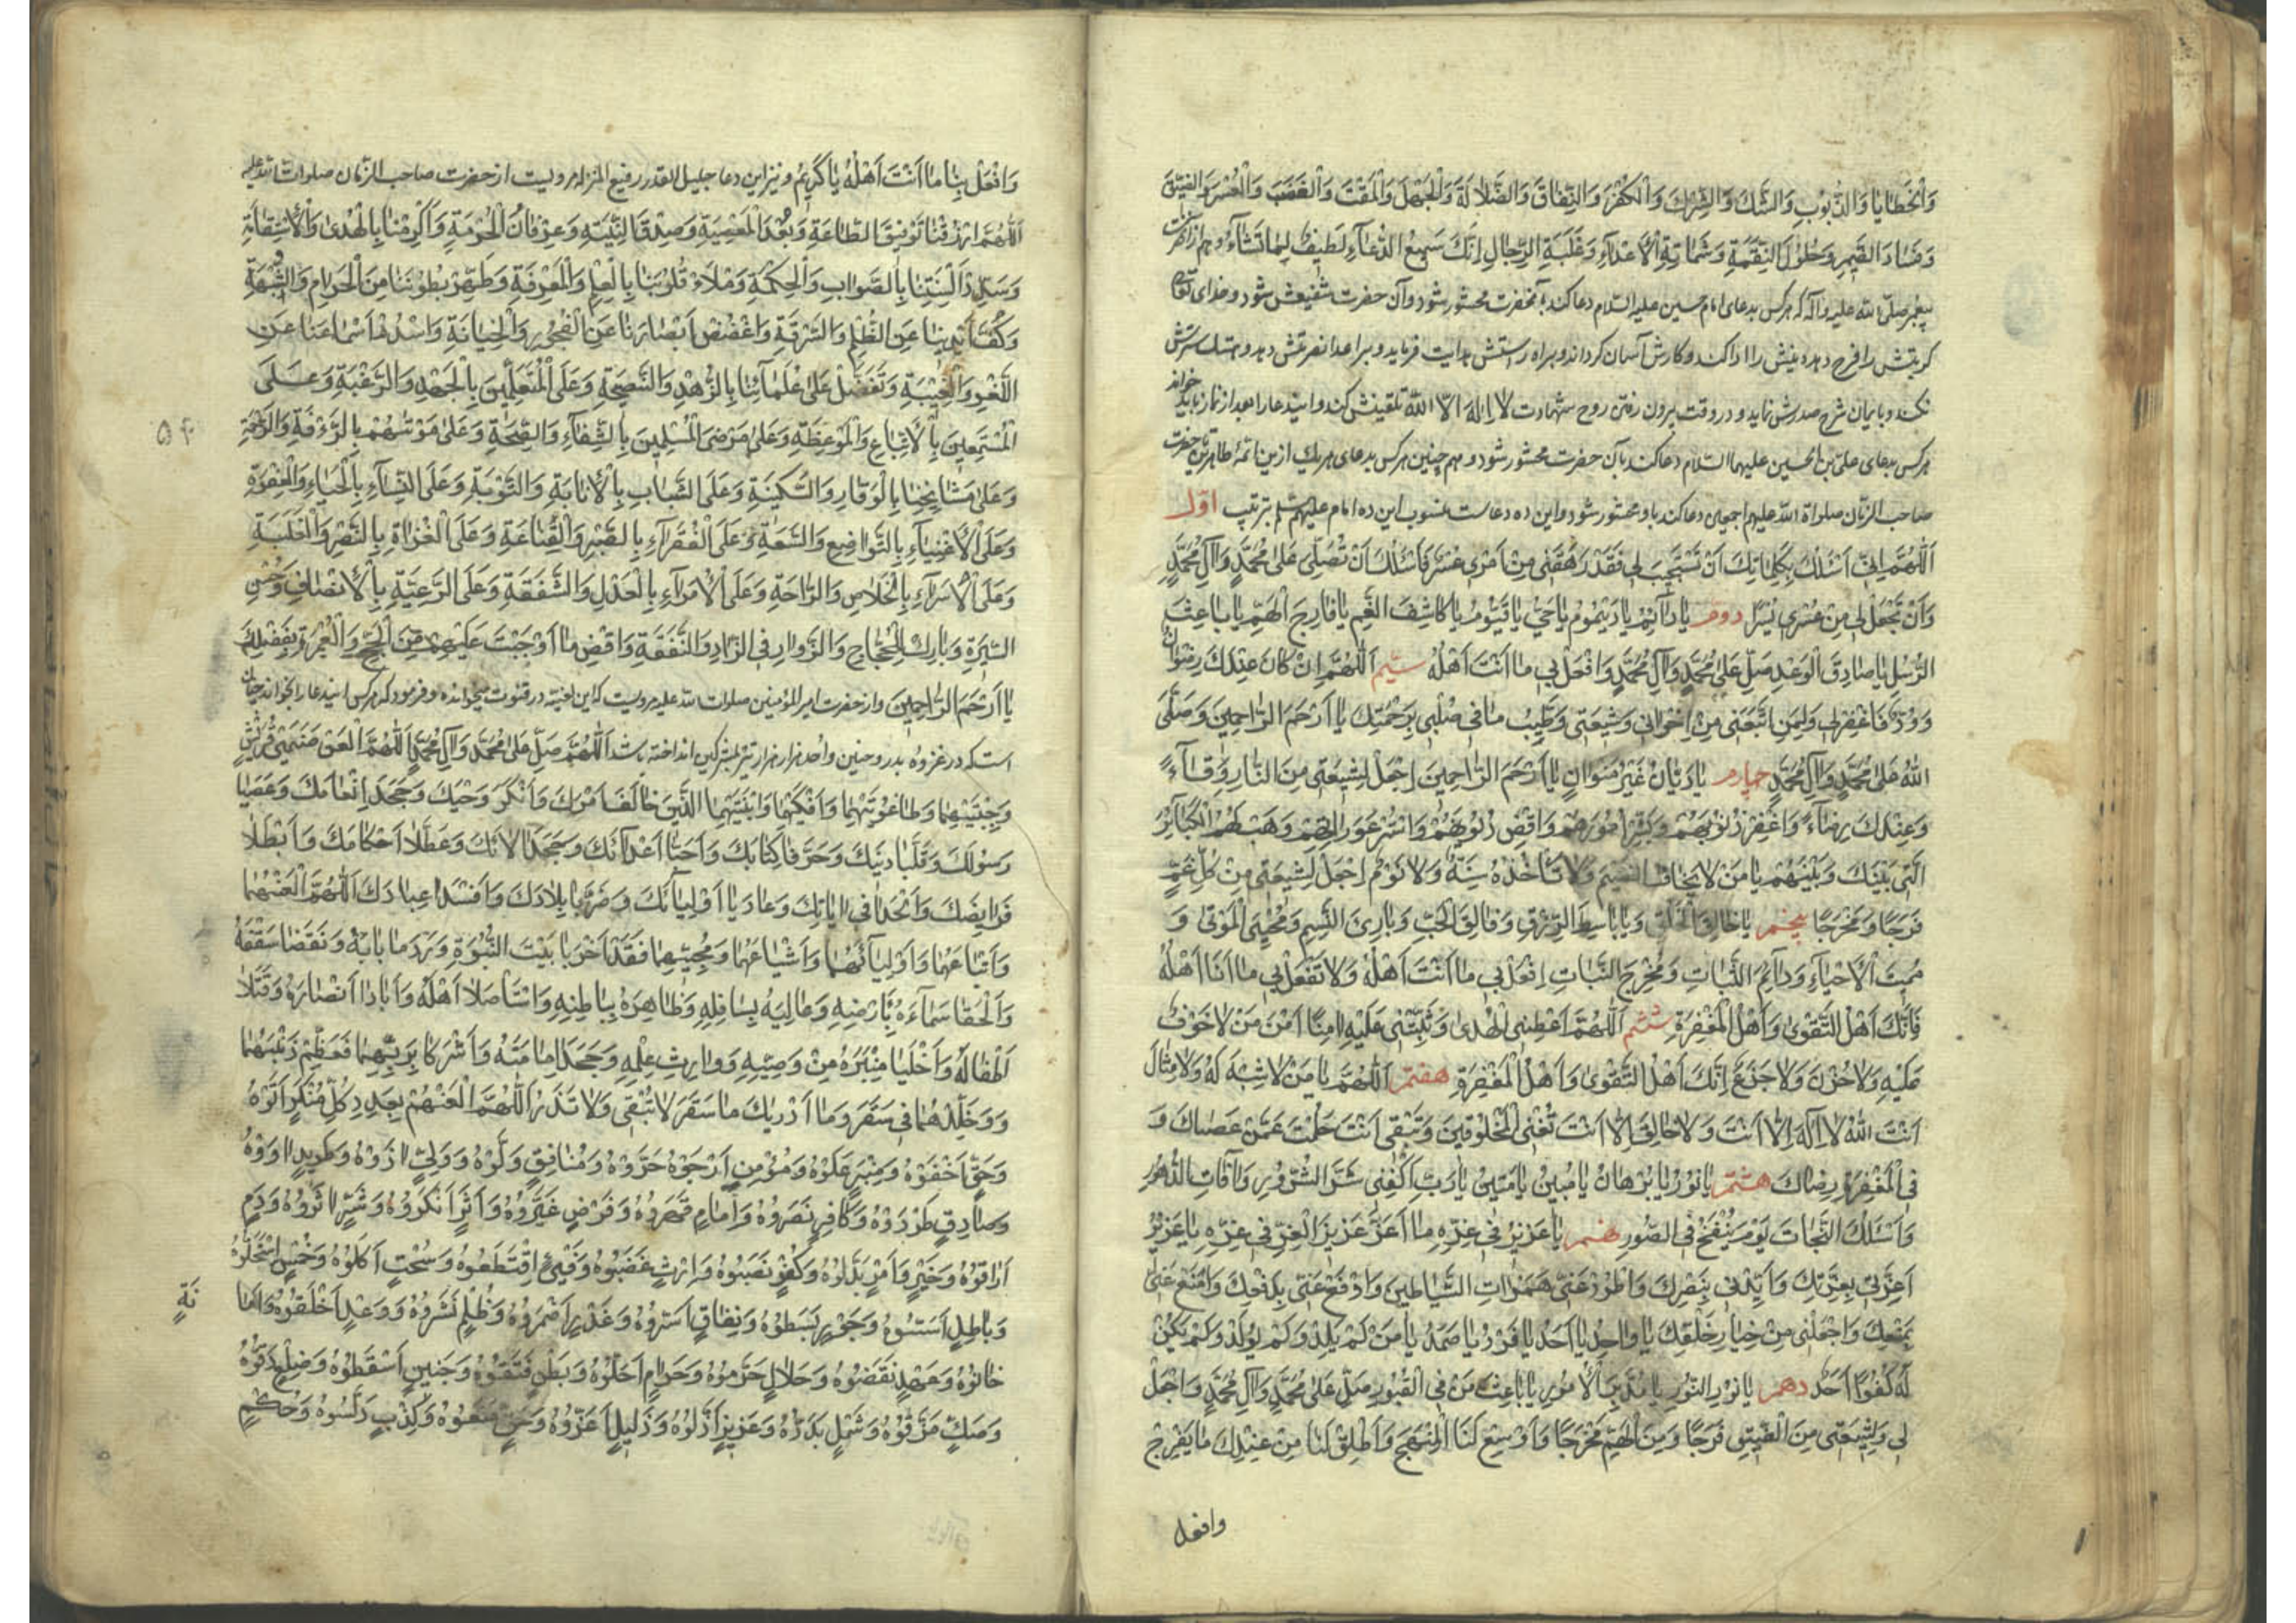 وَالْخَطَايَا وَالذُّنُوبِ وَالشَّكَّ وَالشِّرْكَ وَالْكُفْرَ وَالنِّفَاقَ وَالضَّلَالَةَ وَالْجَهْلَ وَالْمَقْتَ وَالْغَضَبَ وَالْعُسْرَ وَالضِّيقَ
وَفَسَادَ الضَّمِيرِ وَحُلُولَ النَّقِمَةِ وَشَمَاتَةِ الْأَعْدَاءِ وَغَلَبَةِ الرِّجَالِ إِنَّكَ سَمِيعُ الدُّعَاءِ لَطِيفٌ لِمَا تَشَاءُ وهم از آنحضرت
پیغمبر صلی الله علیه وآله که هرکس بدعای امام حسین علیه السلام دعا کند بآنحضرت محشور شود وآن حضرت شفیعش شود و خدای تعالی
کربتش را فرج دهد و دینش را ادا کند و کارش آسان کرداند و براه راستش هدایت فرماید و بر اعدا نصرتش دهد و هتک سترش
نکند و بایمان شرح صدرش نماید و در وقت بیرون رفتن روح شهادت لا اله الا الله تلقینش کند و ایندعا را بعد از نماز باید خواند
هرکس بدعای علی بن الحسین علیهما السلام دعا کند بآن حضرت محشور شود و هم چنین هرکس بدعای هریک ازین ائمهٔ طاهرین تا حضرت
صاحب الزمان صلواة الله علیهم اجمعین دعا کند باو محشور شود و این ده دعاست منسوب این ده امام علیهم بترتیب اوّل
اَللّٰهُمَّ اِنِّی اَسْئَلُكَ بِكَلِمَاتِكَ اَنْ تَسْتَجِيبَ لِي فَقَدْ رَهَقَنِي مِنْ اَمْرِي عُسْرٌ فَاَسْئَلُكَ اَنْ تُصَلِّيَ عَلىٰ مُحَمَّدٍ وَآلِ مُحَمَّدٍ
وَاَنْ تَجْعَلَ لِي مِنْ عُسْرِي يُسْرًا دوم يَا دَآئِمُ يَا دَيْمُومُ يَا حَيُّ يَا قَيُّومُ يَا كَاشِفَ الْغَمِّ يَا فَارِجَ الْهَمِّ يَا بَاعِثَ
الرُّسُلِ يَا صَادِقَ الْوَعْدِ صَلِّ عَلىٰ مُحَمَّدٍ وَآلِ مُحَمَّدٍ وَافْعَلْ بِي مَا اَنْتَ اَهْلُهُ سیم اَللّٰهُمَّ اِنْ كَانَ عِنْدَكَ رِضْوَانٌ
وَوُدٌّ فَاغْفِرْ لِي وَلِمَنِ اتَّبَعَنِي مِنْ اِخْوَانِي وَشِيعَتِي وَطَيِّبْ مَا فِي صُلْبِي بِرَحْمَتِكَ يَا اَرْحَمَ الرَّاحِمِينَ وَصَلَّى
اللهُ عَلىٰ مُحَمَّدٍ وَآلِ مُحَمَّدٍ چهارم يَا دَيَّانُ غَيْرَ مُتَوَانٍ يَا اَرْحَمَ الرَّاحِمِينَ اِجْعَلْ لِشِيعَتِي مِنَ النَّارِ وِقَاءً
وَعِنْدَكَ رِضَاءً وَاغْفِرْ ذُنُوبَهُمْ وَيَسِّرْ اُمُورَهُمْ وَاقْضِ دُيُونَهُمْ وَاسْتُرْ عَوْرَاتِهِمْ وَهَبْ لَهُمُ الْكَبَائِرَ
الَّتِي بَيْنَكَ وَبَيْنَهُمْ يَا مَنْ لَا يَخَافُ الضَّيْمَ وَلَا تَأْخُذُهُ سِنَةٌ وَلَا نَوْمٌ اِجْعَلْ لِشِيعَتِي مِنْ كُلِّ غَمٍّ
فَرَجًا وَمَخْرَجًا پنجم يَا خَالِقَ الْخَلْقِ وَيَا بَاسِطَ الرِّزْقِ وَفَالِقَ الْحَبِّ وَبَارِئَ النَّسَمِ وَمُحْيِيَ الْمَوْتىٰ وَ
مُمِيتَ الْاَحْيَاءِ وَدَآئِمَ الثَّبَاتِ وَمُخْرِجَ النَّبَاتِ اِفْعَلْ بِي مَا اَنْتَ اَهْلُهُ وَلَا تَفْعَلْ بِي مَا اَنَا اَهْلُهُ
فَاِنَّكَ اَهْلُ التَّقْوىٰ وَاَهْلُ الْمَغْفِرَةِ ششم اَللّٰهُمَّ اَعْطِنِي الْهُدىٰ وَثَبِّتْنِي عَلَيْهِ اٰمِنًا اَمْنَ مَنْ لَا خَوْفٌ
عَلَيْهِ وَلَا حُزْنٌ وَلَا جَزَعَ اِنَّكَ اَهْلُ التَّقْوىٰ وَاَهْلُ الْمَغْفِرَةِ هفتم اَللّٰهُمَّ يَا مَنْ لَا شِبْهَ لَهُ وَلَا مِثَالَ
اَنْتَ اللهُ لَا اِلٰهَ اِلَّا اَنْتَ وَلَا خَالِقَ اِلَّا اَنْتَ تُفْنِي الْمَخْلُوقِينَ وَتَبْقىٰ اَنْتَ حَلُمْتَ عَمَّنْ عَصَاكَ وَ
فِي الْمَغْفِرَةِ رِضَاكَ هشتم يَا نُورُ يَا بُرْهَانُ يَا مُبِينُ يَا مَتِينُ يَا رَبِّ اكْفِنِي شَرَّ الشُّرُورِ وَآفَاتِ الدُّهُورِ
وَاَسْئَلُكَ النَّجَاتَ يَوْمَ يُنْفَخُ فِي الصُّورِ نهم يَا عَزِيزُ فِي عِزِّهِ مَا اَعَزَّ عَزِيزَ الْعِزِّ فِي عِزِّهِ يَا عَزِيزُ
اَعِزَّنِي بِعِزِّكَ وَاَيِّدْنِي بِنَصْرِكَ وَاطْرُدْ عَنِّي هَمَزَاتِ الشَّيَاطِينِ وَادْفَعْ عَنِّي بِدَفْعِكَ وَامْنَعْ عَنِّي
بِمَنْعِكَ وَاجْعَلْنِي مِنْ خِيَارِ خَلْقِكَ يَا وَاحِدُ يَا اَحَدُ يَا فَرْدُ يَا صَمَدُ يَا مَنْ لَمْ يَلِدْ وَلَمْ يُولَدْ وَلَمْ يَكُنْ
لَهُ كُفُوًا اَحَدٌ دهم يَا نُورَ النُّورِ يَا مُدَبِّرَ الْاُمُورِ يَا بَاعِثَ مَنْ فِي الْقُبُورِ صَلِّ عَلىٰ مُحَمَّدٍ وَآلِ مُحَمَّدٍ وَاجْعَلْ
لِي وَلِشِيعَتِي مِنَ الضِّيقِ فَرَجًا وَمِنَ الْهَمِّ مَخْرَجًا وَاَوْسِعْ لَنَا الْمَنْهَجَ وَاَطْلِقْ لَنَا مِنْ عِنْدِكَ مَا يُفَرِّجُ
وافعل
وَافْعَلْ بِنَا مَا اَنْتَ اَهْلُهُ يَا كَرِيمُ و نیز این دعا جلیل القدر رفیع المنزله مرویست از حضرت صاحب الزمان صلوات الله علیه
اَللّٰهُمَّ ارْزُقْنَا تَوْفِيقَ الطَّاعَةِ وَبُعْدَ الْمَعْصِيَةِ وَصِدْقَ النِّيَّةِ وَعِرْفَانَ الْحُرْمَةِ وَاَكْرِمْنَا بِالْهُدىٰ وَالْاِسْتِقَامَةِ
وَسَدِّدْ اَلْسِنَتَنَا بِالصَّوَابِ وَالْحِكْمَةِ وَمْلَاءْ قُلُوبَنَا بِالْعِلْمِ وَالْمَعْرِفَةِ وَطَهِّرْ بُطُونَنَا مِنَ الْحَرَامِ وَالشُّبْهَةِ
وَكُفَّ اَيْدِيَنَا عَنِ الظُّلْمِ وَالسَّرِقَةِ وَاغْضُضْ اَبْصَارَنَا عَنِ الْفُجُورِ وَالْخِيَانَةِ وَاسْدُدْ اَسْمَاعَنَا عَنِ
اللَّغْوِ وَالْغِيبَةِ وَتَفَضَّلْ عَلىٰ عُلَمَائِنَا بِالزُّهْدِ وَالنَّصِيحَةِ وَعَلَى الْمُتَعَلِّمِينَ بِالْجَهْدِ وَالرَّغْبَةِ وَعَلَى
الْمُسْتَمِعِينَ بِالْاِتِّبَاعِ وَالْمَوْعِظَةِ وَعَلىٰ مَرْضَى الْمُسْلِمِينَ بِالشِّفَاءِ وَالصِّحَةِ وَعَلىٰ مَوْتٰىهُمْ بِالرَّءْفَةِ وَالرَّحْمَةِ
وَعَلىٰ مَشَايِخِنَا بِالْوَقَارِ وَالسَّكِينَةِ وَعَلَى الشَّبَابِ بِالْاِنَابَةِ وَالتَّوْبَةِ وَعَلَى النِّسَاءِ بِالْحَيَاءِ وَالْعِفَّةِ
وَعَلَى الْاَغْنِيَاءِ بِالتَّوَاضُعِ وَالسَّعَةِ وَعَلَى الْفُقَرَاءِ بِالصَّبْرِ وَالْقَنَاعَةِ وَعَلَى الْغُزَاةِ بِالنَّصْرِ وَالْغَلَبَةِ
وَعَلَى الْاُسَرَاءِ بِالْخَلَاصِ وَالرَّاحَةِ وَعَلَى الْاُمَرَاءِ بِالْعَدْلِ وَالشَّفَقَةِ وَعَلَى الرَّعِيَّةِ بِالْاِنْصَافِ وَحُسْنِ
السِّيرَةِ وَبَارِكْ لِلْحُجَّاجِ وَالزُّوَّارِ فِي الزَّادِ وَالنَّفَقَةِ وَاقْضِ مَا اَوْجَبْتَ عَلَيْهِمْ مِنَ الْحَجِّ وَالْعُمْرَةِ بِفَضْلِكَ
يَا اَرْحَمَ الرَّاحِمِينَ و از حضرت امیر المؤمنین صلوات الله علیه مرویست که این ادعیه در قنوت میخوانده و فرمود که هرکس ایندعا را بخواند چنان
است که در غزوه بدر و حنین و احد هزار هزار تیر بمشرکین انداخته باشد اَللّٰهُمَّ صَلِّ عَلىٰ مُحَمَّدٍ وَآلِ مُحَمَّدٍ اَللّٰهُمَّ الْعَنْ صَنَمَيْ قُرَيْشٍ
وَجِبْتَيْهِمَا وَطَاغُوتَيْهِمَا وَاَفْكَيْهِمَا وَابْنَتَيْهِمَا الَّذَيْنِ خَالَفَا اَمْرَكَ وَاَنْكَرَا وَحْيَكَ وَجَحَدَا اِنْعَامَكَ وَعَصَيَا
رَسُولَكَ وَقَلَّبَا دِينَكَ وَحَرَّفَا كِتَابَكَ وَاَحَبَّا اَعْدَآئَكَ وَجَحَدَا آلَائَكَ وَعَطَّلَا اَحْكَامَكَ وَاَبْطَلَا
فَرَايِضَكَ وَاَلْحَدَا فِي اٰيَاتِكَ وَعَادَيَا اَوْلِيَآئَكَ وَخَرَّبَا بِلَادَكَ وَاَفْسَدَا عِبَادَكَ اَللّٰهُمَّ الْعَنْهُمَا
وَاَتْبَاعَهُمَا وَاَوْلِيَآئَهُمَا وَاَشْيَاعَهُمَا وَمُحِبِّيهِمَا فَقَدْ اَخْرَبَا بَيْتَ النُّبُوَّةِ وَرَدَمَا بَابَهُ وَنَقَضَا سَقْفَهُ
وَاَلْحَقَا سَمَآءَهُ بِاَرْضِهِ وَعَالِيَهُ بِسَافِلِهِ وَظَاهِرَهُ بِبَاطِنِهِ وَاسْتَأْصَلَا اَهْلَهُ وَاَبَادَا اَنْصَارَهُ وَقَتَلَا
اَطْفَالَهُ وَاَخْلَيَا مِنْبَرَهُ مِنْ وَصِيِّهِ وَوَارِثِ عِلْمِهِ وَجَحَدَا اِمَامَتَهُ وَاَشْرَكَا بِرَبِّهِمَا فَعَظِّمْ ذَنْبَهُمَا
وَخَلِّدْهُمَا فِي سَقَرَ وَمَا اَدْرٰيكَ مَا سَقَرُ لَا تُبْقِي وَلَا تَذَرُ اَللّٰهُمَّ الْعَنْهُمْ بِعَدَدِ كُلِّ مُنْكَرٍ اَتَوْهُ
وَحَقٍّ اَخْفَوْهُ وَمِنْبَرٍ عَلَوْهُ وَمُؤْمِنٍ اَرْجَوْهُ وَمُنَافِقٍ وَلَّوْهُ وَوَلِيٍّ اٰذَوْهُ وَطَرِيدٍ اٰوَوْهُ
وَصَادِقٍ طَرَدُوهُ وَكَافِرٍ نَصَرُوهُ وَاِمَامٍ قَهَرُوهُ وَفَرْضٍ غَيَّرُوهُ وَاَثَرٍ اَنْكَرُوهُ وَشَرٍّ اٰثَرُوهُ وَدَمٍ
اَرَاقُوهُ وَخَيْرٍ وَاَمْرٍ بَدَّلُوهُ وَكُفْرٍ نَصَبُوهُ وَاِرْثٍ غَصَبُوهُ وَفَيْءٍ اقْتَطَعُوهُ وَسُحْتٍ اَكَلُوهُ وَخُمْسٍ اسْتَحَلُّوهُ
وَبَاطِلٍ اَسَّسُوهُ وَجَوْرٍ بَسَطُوهُ وَنِفَاقٍ اَسَرُّوهُ وَغَدْرٍ اَضْمَرُوهُ وَظُلْمٍ نَشَرُوهُ وَوَعْدٍ اَخْلَفُوهُ وَاَمَا
نَةٍ
خَانُوهُ وَعَهْدٍ نَقَضُوهُ وَحَلَالٍ حَرَّمُوهُ وَحَرَامٍ اَحَلُّوهُ وَبَطْنٍ فَتَقُوهُ وَجَنِينٍ اَسْقَطُوهُ وَضِلْعٍ دَقُّوهُ
وَصَكٍّ مَزَّقُوهُ وَشَمْلٍ بَدَّدُوهُ وَعَزِيزٍ اَذَلُّوهُ وَذَلِيلٍ اَعَزُّوهُ وَحَقٍّ مَنَعُوهُ وَكِذْبٍ دَلَّسُوهُ وَحُكْمٍ